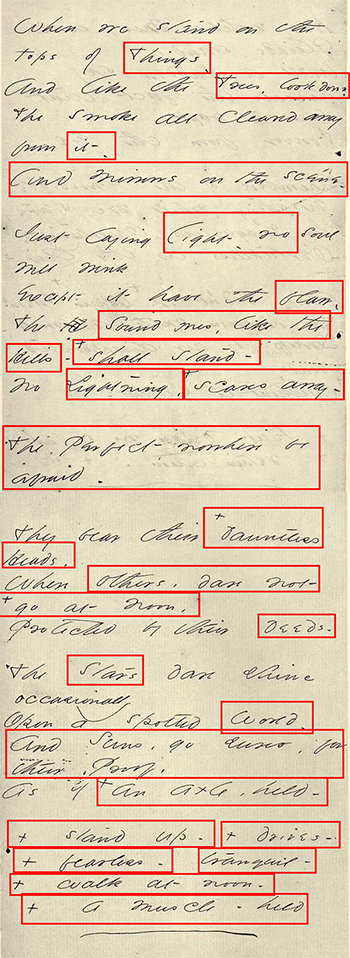 When we stand on the
tops of Things.
And like the Trees, look down.
The smoke all cleared away
from it -
And mirrors on the scene -
Just laying light - no soul
will wink
Except it have the flaw -
The Sound ones, like the
Hills - + shall stand -
no Lightning, + scares away -
The Perfect - nowhere be
afraid -
They bear their + dauntless
Heads,
When others, dare not -
+ go at noon,
Protected by their deeds -
The Stars dare shine
occasionally
Upon a spotted World -
And Suns, go surer, for
their Proof,
As if + an axle, held -
+ stand up - + drives -
+ fearless - tranquil -
+ walk at noon -
+ a muscle - held